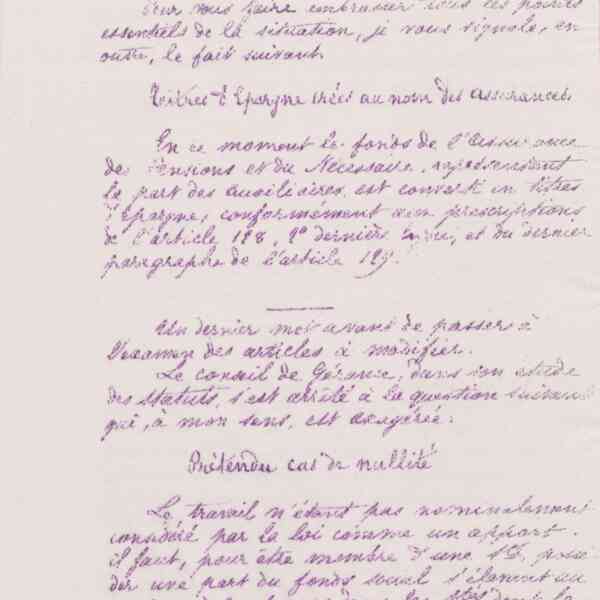 Pour vous faire embrasser tous les points
essentiels de la situation, je vous signale, en
outre, le fait suivant.
Titres d'Epargne créés au nom des assurances
En ce moment le fonds de l'Assurance
des Pensions et du Nécessaire, représentant
la part des auxiliaires, est converti en titres
d'Epargne, conformément aux prescriptions
de l'article 128, 2° dernière et du dernier
paragraphe de l'article 129.
Un dernier mot avant de passer à
l'examen des articles à modifier.
Le conseil de Gérance, dans son étude
des statuts, s'est arrêté à la question suivante
qui, à mon sens, est exagérée.
Prétendu cas de nullité
Le travail n'étant pas nominalement
considéré par la loi comme un apport.
il faut, pour être membre d'une Sté, possé
der une part du fonds social s'élevant au